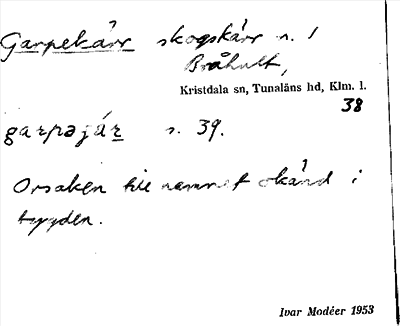 Garpekärr skogskärr n. 1
Bråhult,
Kristdala sn, Tunaläns hd, Klm. l.
38
garpəjá̱r s. 39.
Orsaken till namnet okänd i
bygden.
Ivar Modéer 1953